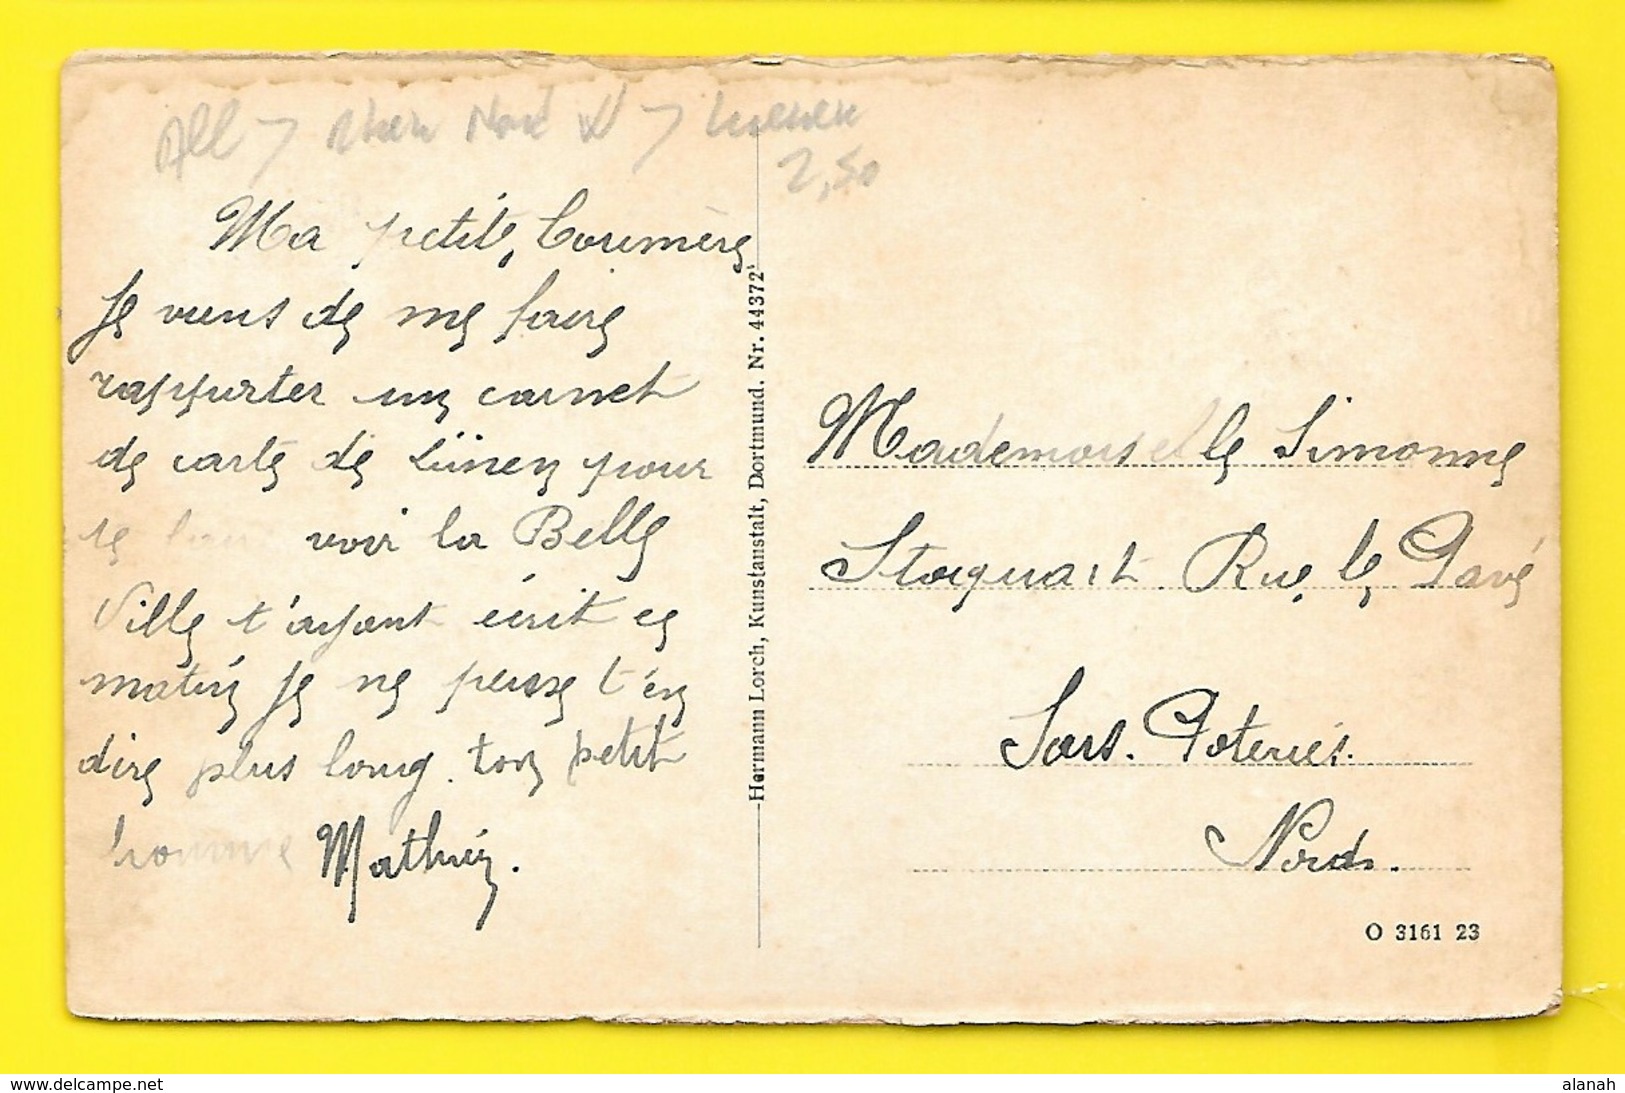 All > Rhein Nord W > Luenen
2,50
Ma petite Commère
Je viens de me faire
rapporter un carnet
de carte de Lünen pour
te faire voir la Belle
Ville t'ayant écrit ce
matin je ne pense t'en
dire plus long. ton petit
homme Mathieu.
Hermann Lorch, Kunstanstalt, Dortmund. Nr. 44372
Mademoiselle Simonne
Staquart Rue le Pavé
Sars. Poteries.
Nord.
O 3161 23
www.delcampe.net
alanah